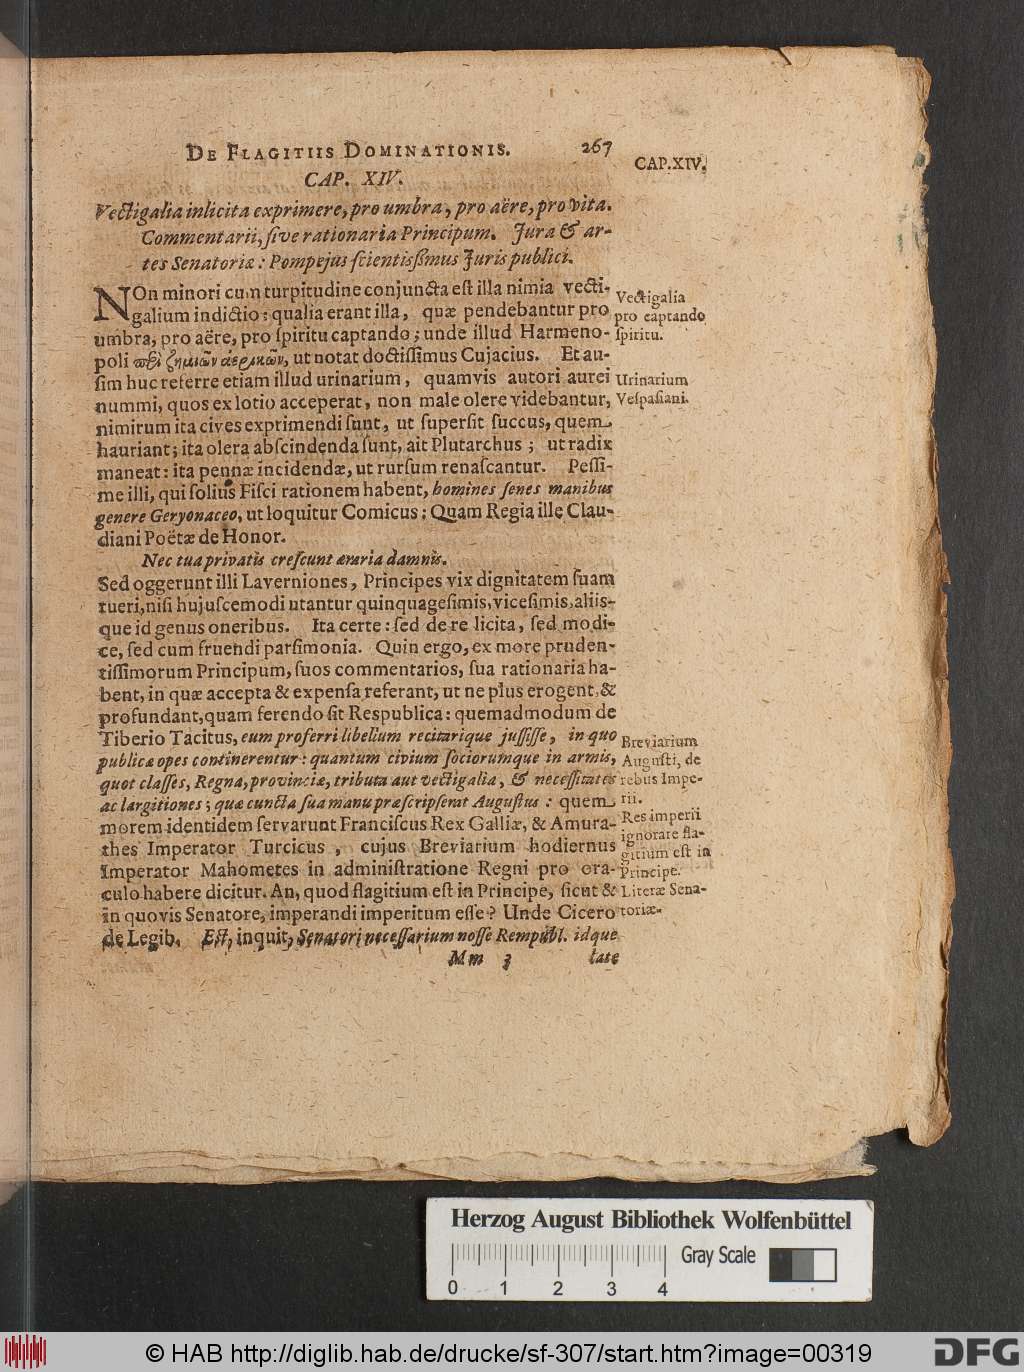 De Flagitiis Dominationis. 267
CAP.XIV.
CAP. XIV.
Vectigalia inlicita exprimere, pro umbra, pro aëre, pro vita.
Commentarii, ſive rationaria Principum. Jura & ar-
tes Senatoriæ: Pompejus ſcientiſſimus Juris publici.
NOn minori cum turpitudine conjuncta eſt illa nimia vecti-
galium indictio: qualia erant illa, quæ pendebantur pro
umbra, pro aëre, pro ſpiritu captando; unde illud Harmeno-
poli περὶ ζημιῶν ἀερικῶν, ut notat doctiſſimus Cujacius. Et au-
ſim huc referre etiam illud urinarium, quamvis autori aurei
nummi, quos ex lotio acceperat, non male olere videbantur,
nimirum ita cives exprimendi ſunt, ut ſuperſit ſuccus, quem
hauriant; ita olera abſcindenda ſunt, ait Plutarchus; ut radix
maneat: ita pennæ incidendæ, ut rurſum renaſcantur. Peſſi-
me illi, qui ſolius Fiſci rationem habent, homines ſenes manibus
genere Geryonaceo, ut loquitur Comicus; Quam Regia ille Clau-
diani Poëtæ de Honor.
Nec tua privatis creſcunt æraria damnis.
Sed oggerunt illi Laverniones, Principes vix dignitatem ſuam
tueri, niſi hujuſcemodi utantur quinquageſimis, viceſimis, aliis-
que id genus oneribus. Ita certe: ſed de re licita, ſed modi-
ce, ſed cum fruendi parſimonia. Quin ergo, ex more pruden-
tiſſimorum Principum, ſuos commentarios, ſua rationaria ha-
bent, in quæ accepta & expenſa referant, ut ne plus erogent, &
profundant, quam ferendo ſit Respublica: quemadmodum de
Tiberio Tacitus, eum proferri libellum recitarique juſſiſſe, in quo
publicæ opes continerentur: quantum civium ſociorumque in armis,
quot claſſes, Regna, provinciæ, tributa aut vectigalia, & neceſſitates
ac largitiones; quæ cuncta ſua manu præſcripſerat Auguſtus: quem
morem identidem ſervarunt Franciſcus Rex Galliæ, & Amura-
thes Imperator Turcicus, cujus Breviarium hodiernus
Imperator Mahometes in adminiſtratione Regni pro ora-
culo habere dicitur. An, quod flagitium eſt in Principe, ſicut &
in quovis Senatore, imperandi imperitum eſſe? Unde Cicero
de Legib. Eſt, inquit, Senatori neceſſarium noſſe Rempubl. idque
Mm 3 late
Vectigalia
pro captando
ſpiritu.
Urinarium
Veſpaſiani.
Breviarium
Auguſti, de
rebus Impe-
rii.
Res imperii
ignorare fla-
gitium eſt in
Principe.
Literæ Sena-
toriæ.
Herzog August Bibliothek Wolfenbüttel
Gray Scale
0 1 2 3 4
© HAB http://diglib.hab.de/drucke/sf-307/start.htm?image=00319
DFG